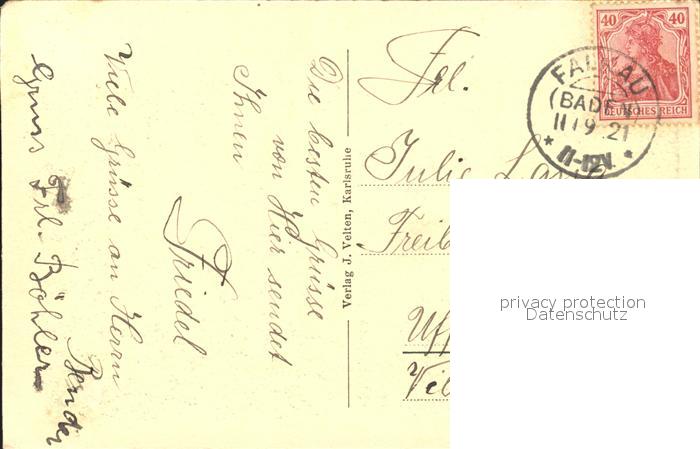 Die besten Grüsse
von Hier sendet
Ihnen
Friedel
Viele Grüsse an Herrn
Bender
Gruss Frl. Böhler
Verlag J. Velten, Karlsruhe
Frl.
Julie
Freib
40 40
DEUTSCHES REICH
FALKAU
(BADEN)
11 9 21
* 11-12V. *
privacy protection
Datenschutz